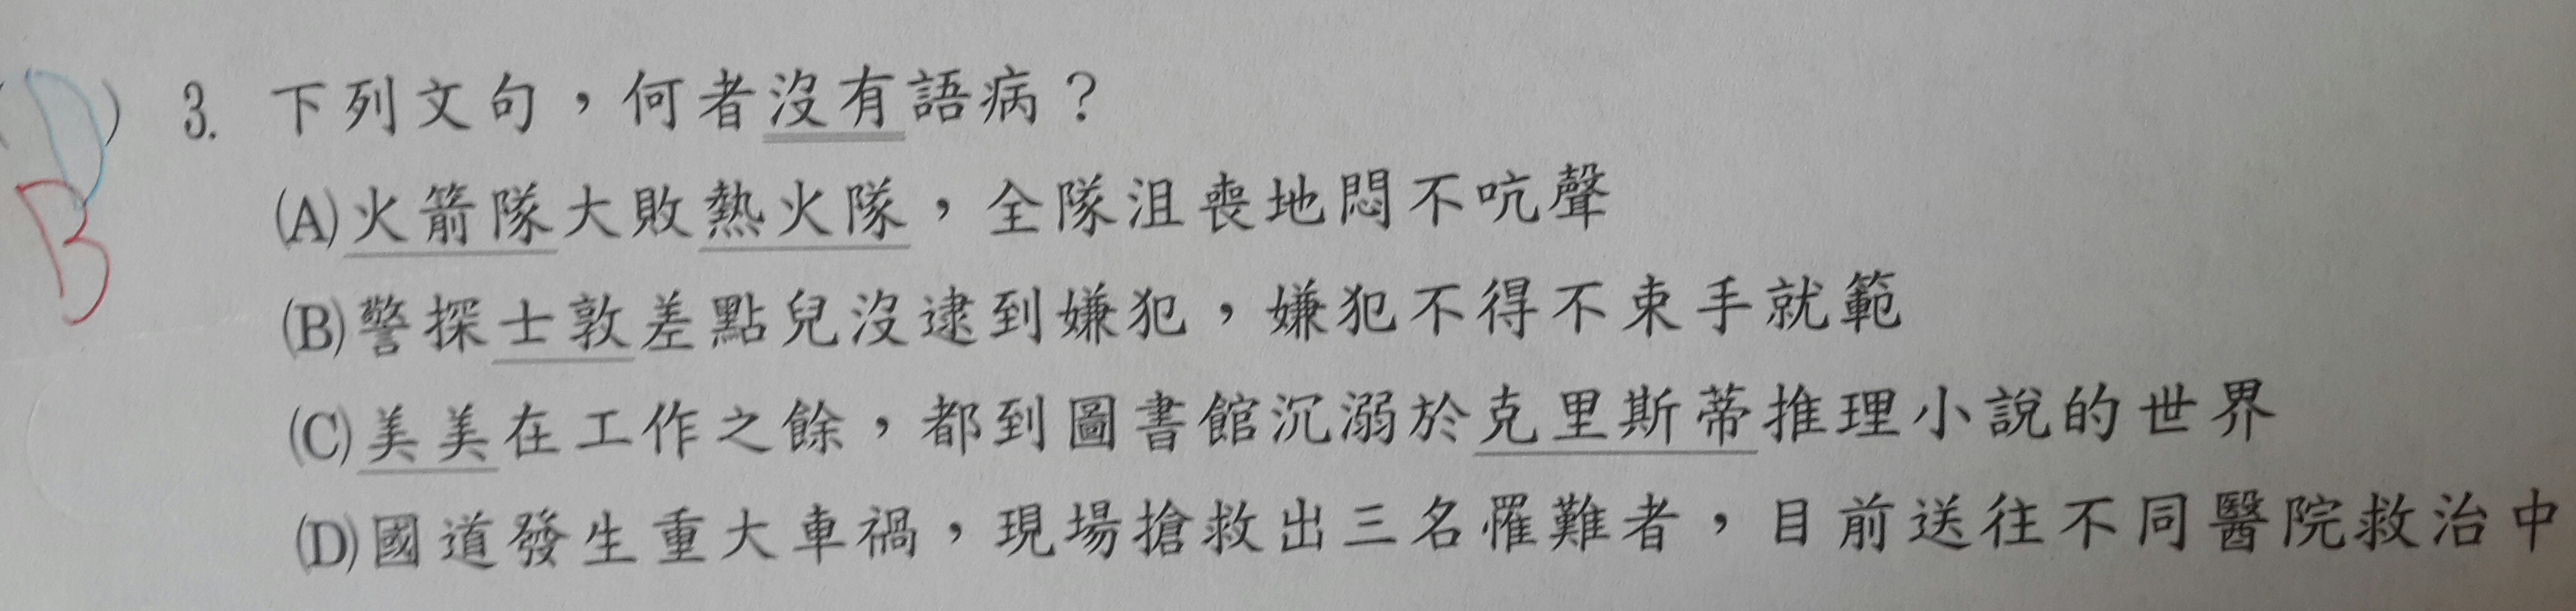 (D) 3. 下列文句，何者沒有語病？
B
(A)火箭隊大敗熱火隊，全隊沮喪地悶不吭聲
(B)警探士敦差點兒沒逮到嫌犯，嫌犯不得不束手就範
(C)美美在工作之餘，都到圖書館沉溺於克里斯蒂推理小說的世界
(D)國道發生重大車禍，現場搶救出三名罹難者，目前送往不同醫院救治中